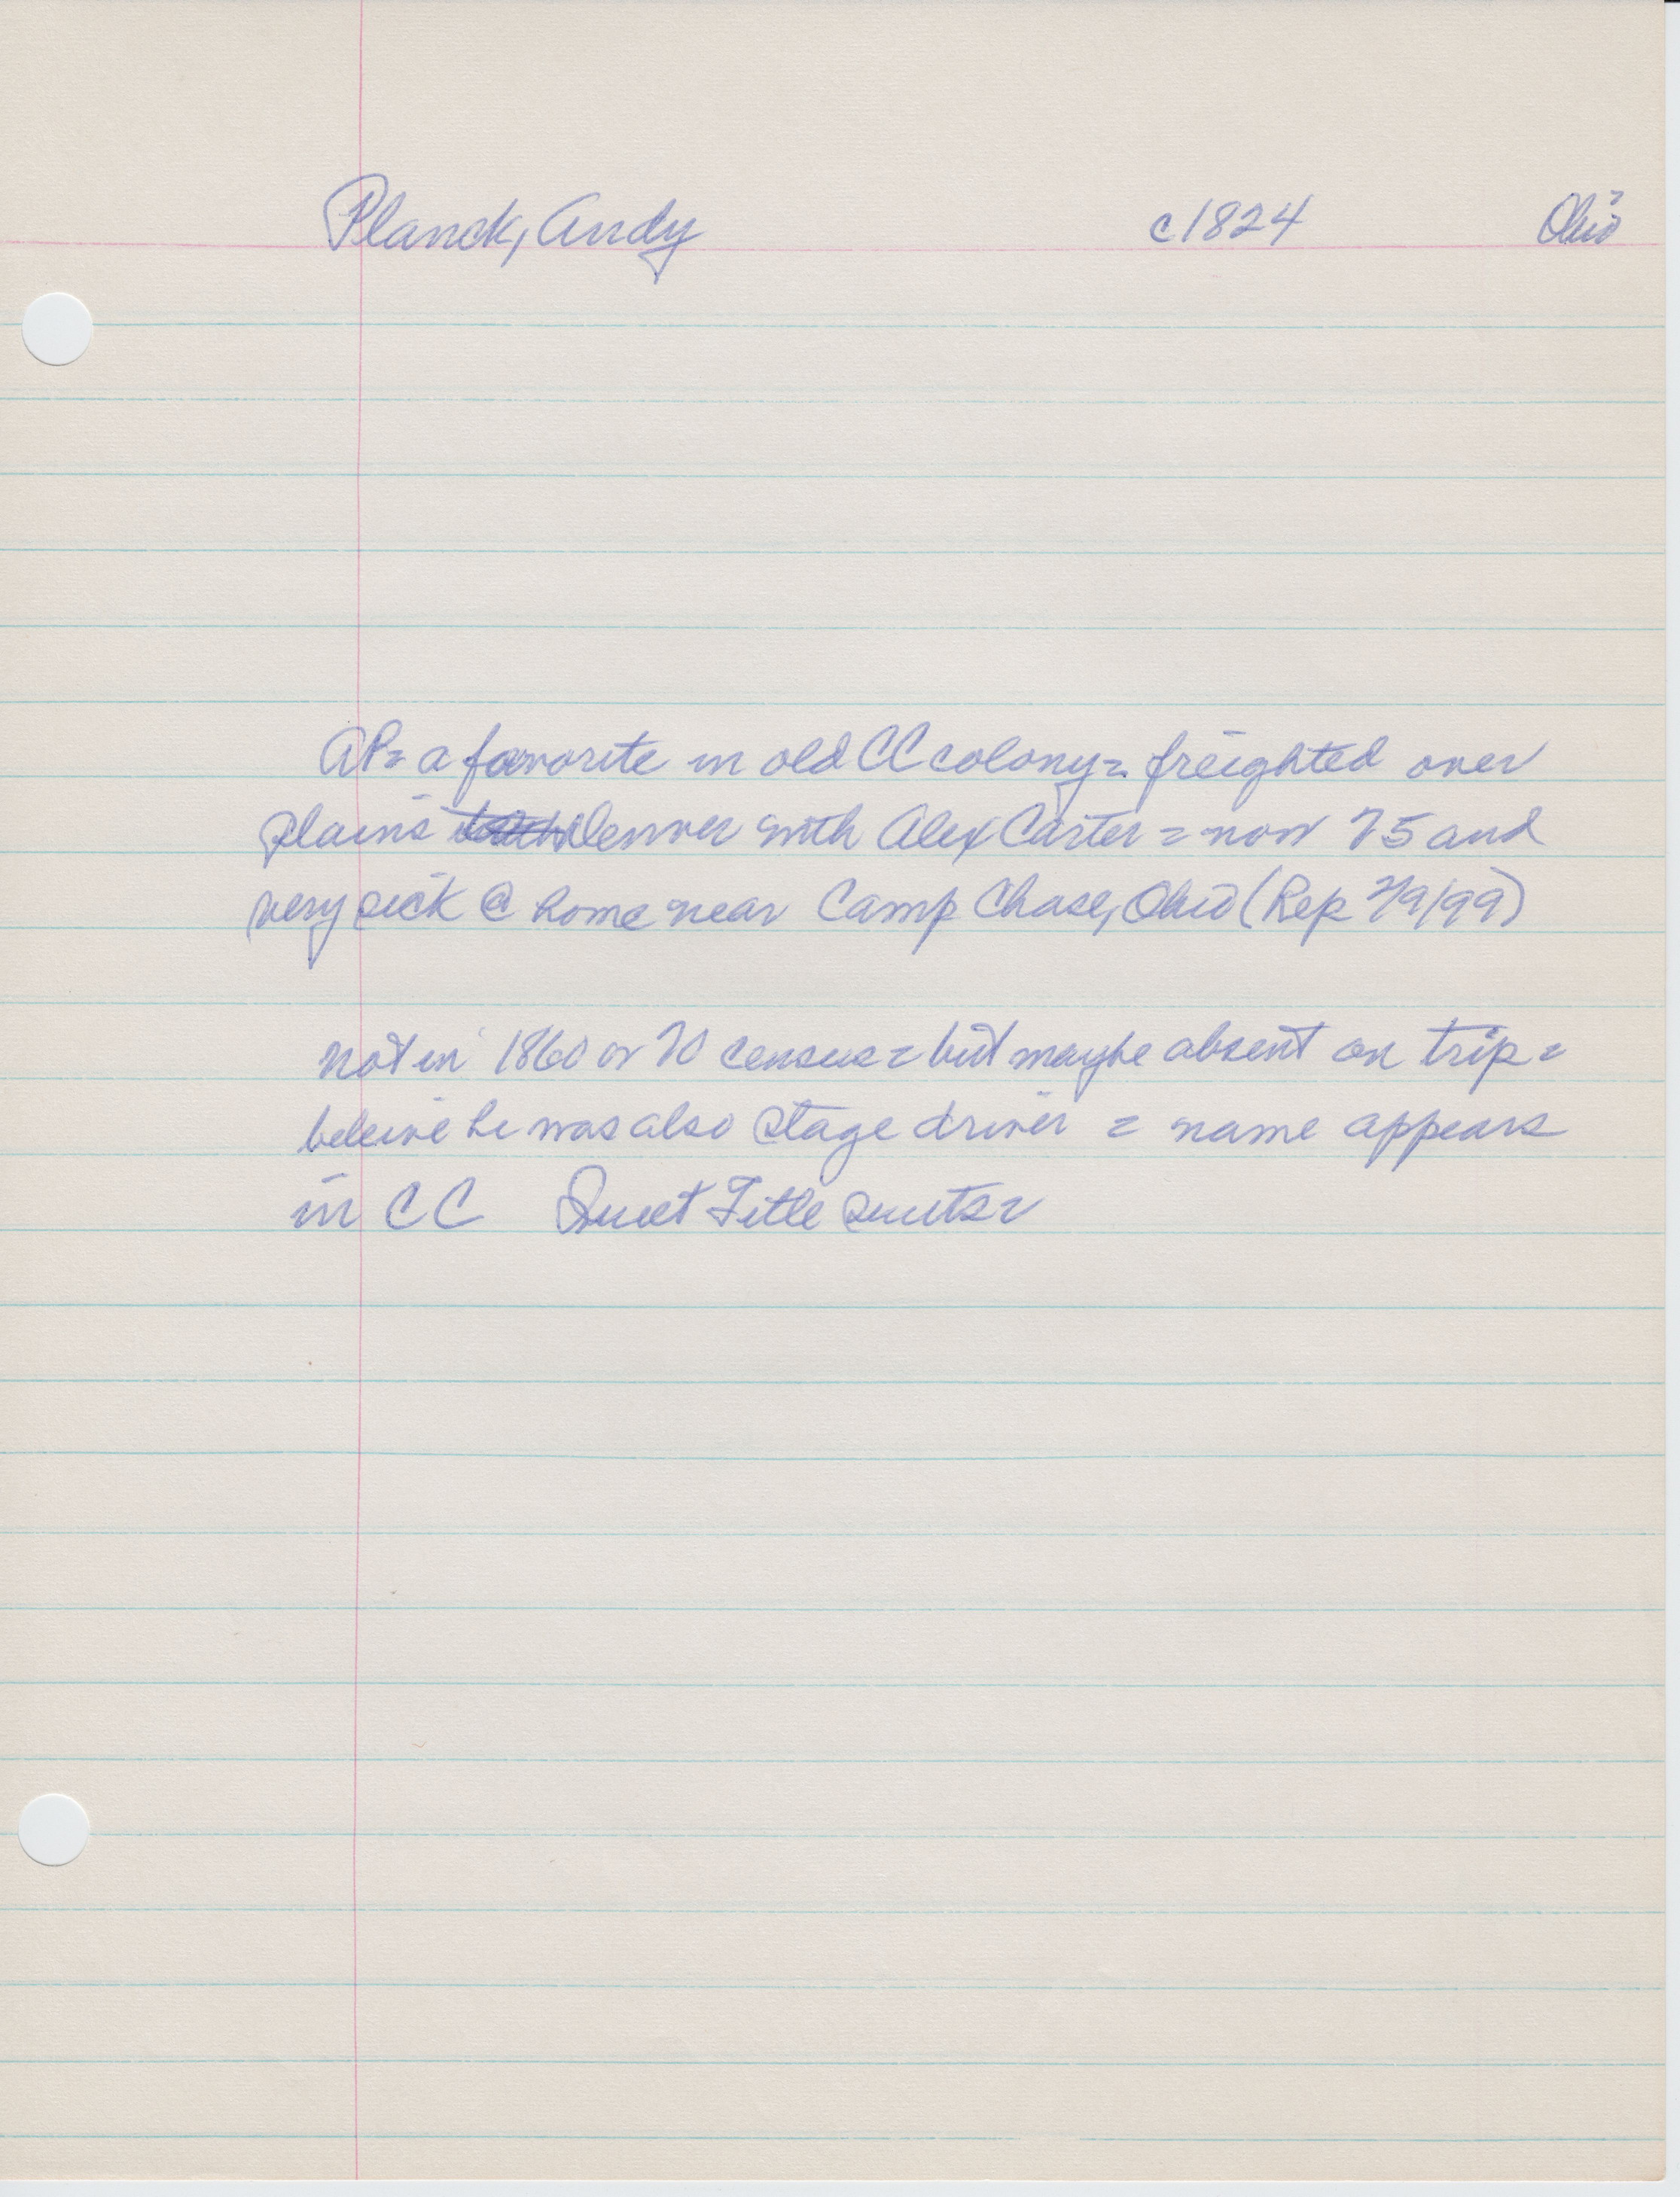 Planck, Andy c1824 Ohio
AP= a favorite in old CC colony= freighted over
plains Denver with Alex Carter = now 75 and
very sick @ home near Camp Chase, Ohio (Rep 2/9/99)
not in 1860 or 70 census = but maybe absent on trip =
beleive he was also stage driver = name appears
in CC Quiet Title suits=